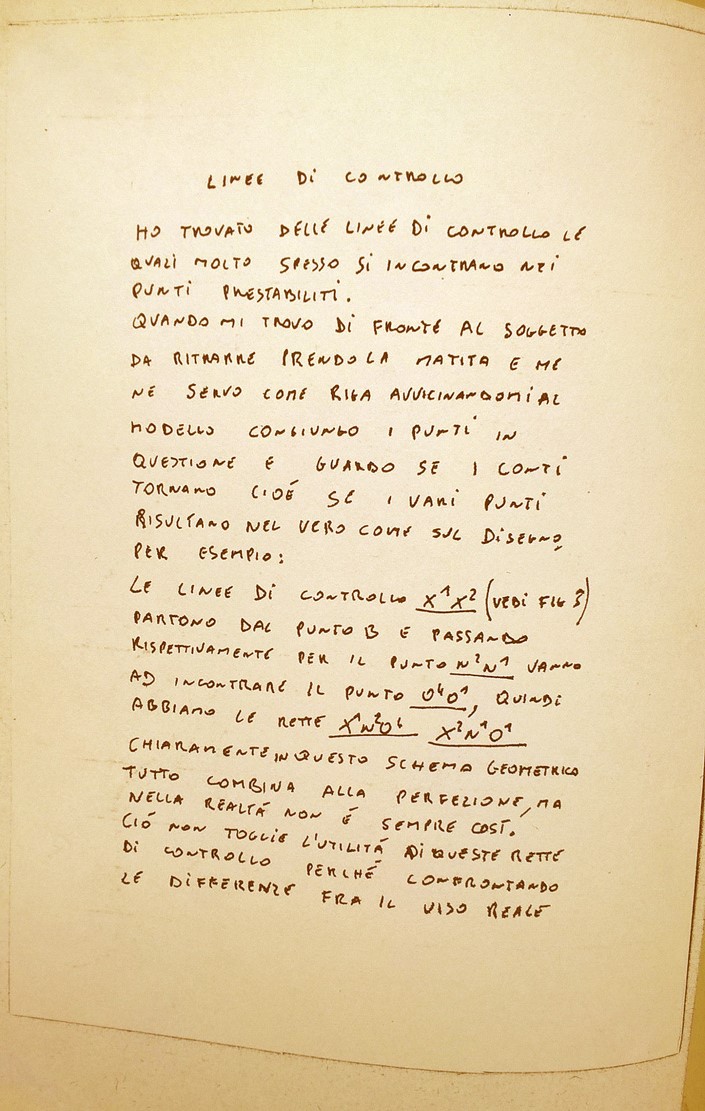 LINEE DI CONTROLLO
HO TROVATO DELLE LINEE DI CONTROLLO LE
QUALI MOLTO SPESSO SI INCONTRANO NEI
PUNTI PRESTABILITI.
QUANDO MI TROVO DI FRONTE AL SOGGETTO
DA RITRARRE PRENDO LA MATITA E ME
NE SERVO COME RIGA AVVICINANDOMI AL
MODELLO CONGIUNGO I PUNTI IN
QUESTIONE E GUARDO SE I CONTI
TORNANO CIOÉ SE I VARI PUNTI
RISULTANO NEL VERO COME SUL DISEGNO,
PER ESEMPIO:
LE LINEE DI CONTROLLO X¹X² (VEDI FIG 3)
PARTONO DAL PUNTO B E PASSANDO
RISPETTIVAMENTE PER IL PUNTO N²N¹ VANNO
AD INCONTRARE IL PUNTO O⁴O¹, QUINDI
ABBIAMO LE RETTE X¹N²O⁴ X²N¹O¹
CHIARAMENTE IN QUESTO SCHEMA GEOMETRICO
TUTTO COMBINA ALLA PERFEZIONE, MA
NELLA REALTÁ NON É SEMPRE COSÍ.
CIÓ NON TOGLIE L'UTILITÁ DI QUESTE RETTE
DI CONTROLLO PERCHÉ CONFRONTANDO
LE DIFFERENZE FRA IL VISO REALE